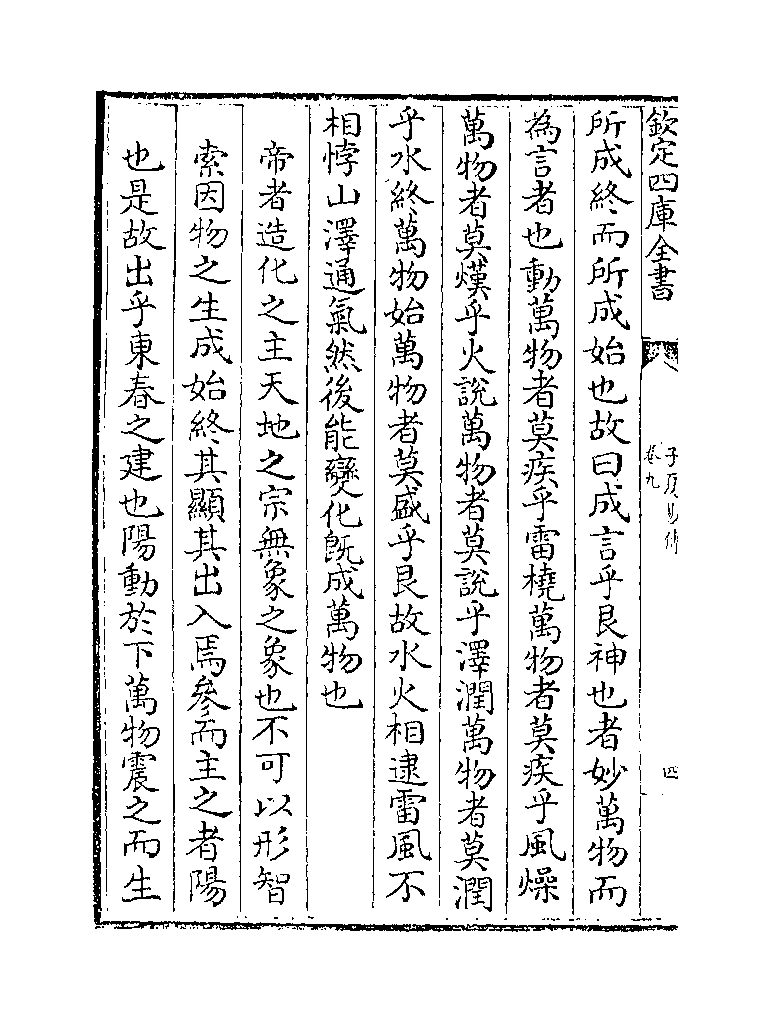 欽定四庫全書
子夏易傳
卷九
四
所成終而所成始也故曰成言乎艮神也者妙萬物而
為言者也動萬物者莫疾乎雷橈萬物者莫疾乎風燥
萬物者莫熯乎火說萬物者莫說乎澤潤萬物者莫潤
乎水終萬物始萬物者莫盛乎艮故水火相逮雷風不
相悖山澤通氣然後能變化既成萬物也
帝者造化之主天地之宗無象之象也不可以形智
索因物之生成始終其顯其出入焉參而主之者陽
也是故出乎東春之建也陽動於下萬物震之而生